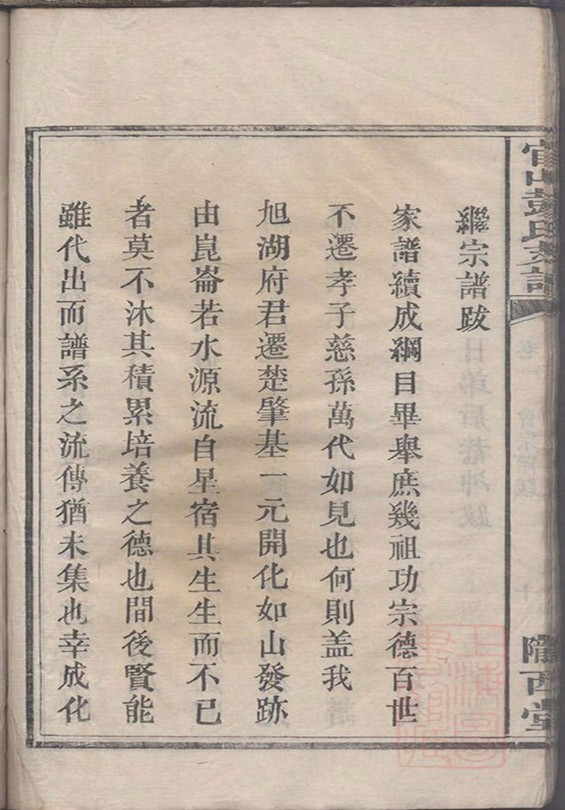 官山彭氏支譜
隴西堂
繼宗譜跋
家譜續成綱目畢舉庶幾祖功宗德百世
不遷孝子慈孫萬代如見也何則盖我
旭湖府君遷楚肇基一元開化如山發跡
由崑崙若水源流自星宿其生生而不已
者莫不沐其積累培養之德也間後賢能
雖代出而譜系之流傳猶未集也幸成化